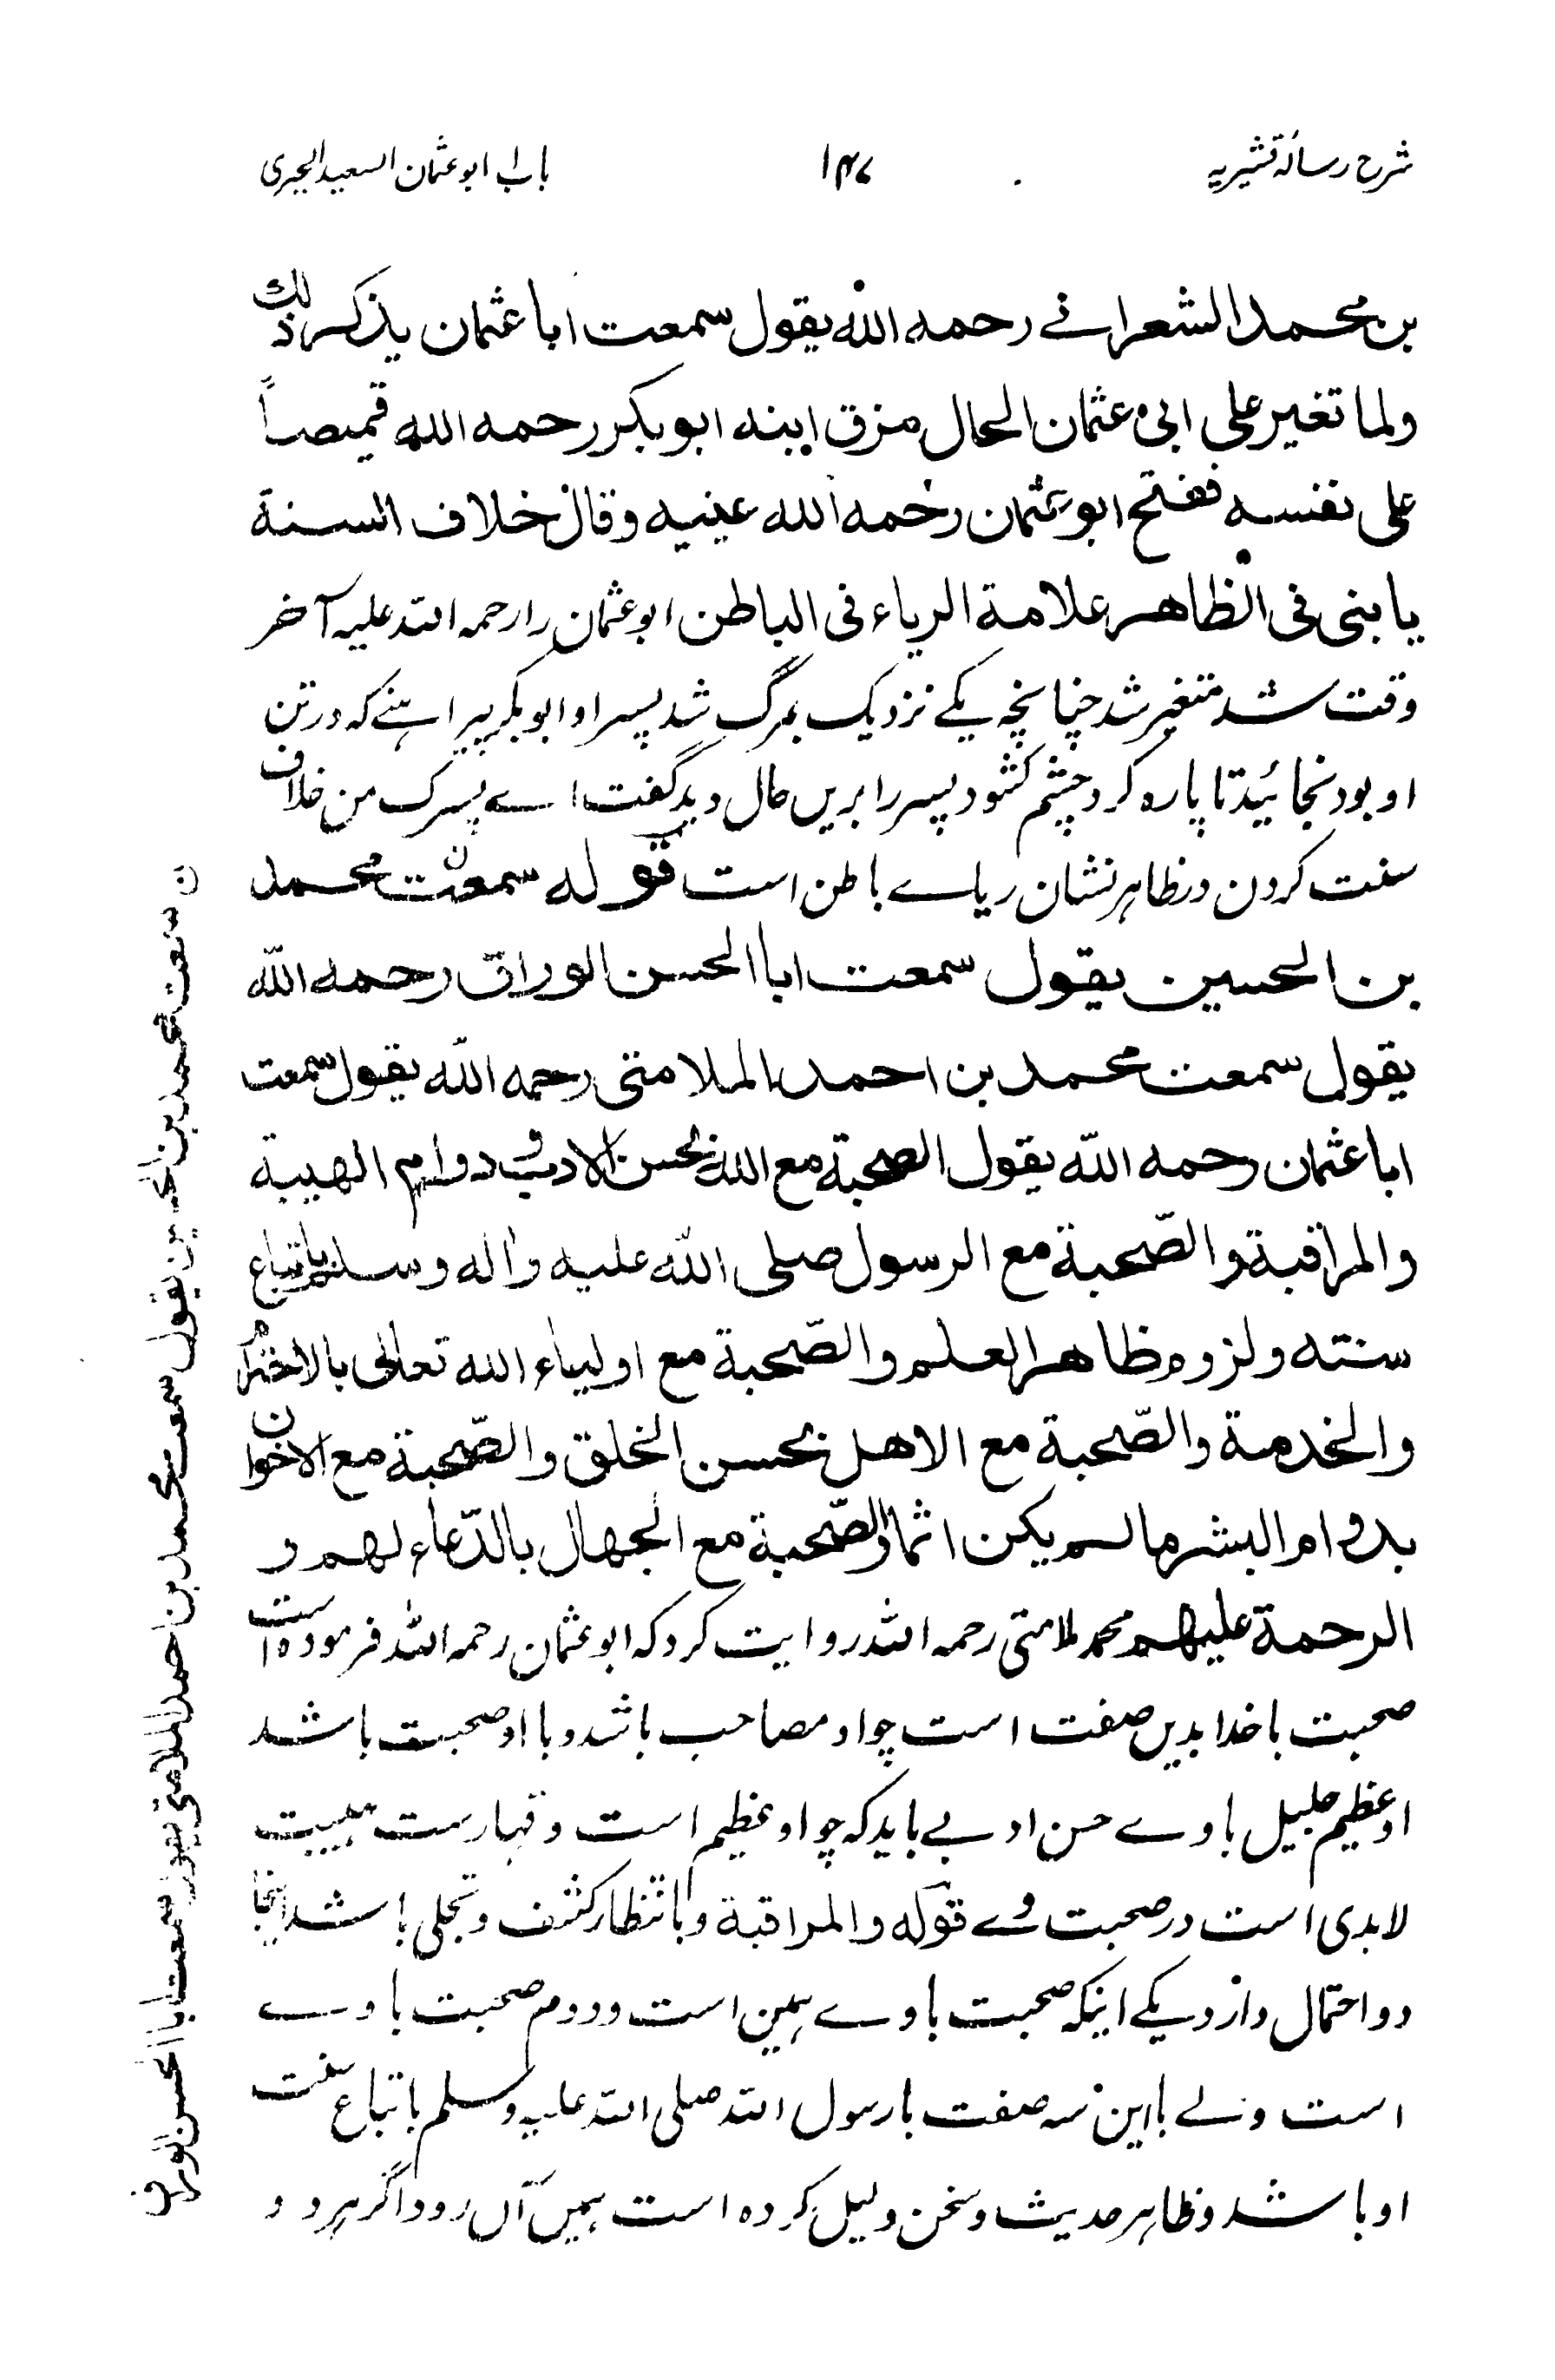 شرح رسالۂ قشیریہ
۱۴۷
باب ابو عثمان السعید الحیری
بن محمد الشعرانے رحمه الله يقول سمعت ابا عثمان يذكر ذلك
ولما تغير على ابى عثمان الحال مزق ابنه ابو بكر رحمه الله قميصاً
على نفسه ففتح ابو عثمان رحمه الله عينيه وقال خلاف السنة
يا بنى فى الظاهر علامة الرياء فى الباطن ابو عثمان را رحمہ اللہ علیہ آخر
وقت شد متغیر شد چنانچہ یکے نزدیک بمرگ شد پسر او ابو بکر پیراہنے کہ در تن
او بود نجائید تا پارہ کرد چشم کشود پسر را بریں حال دید گفت اے پسرک من خلاف
سنت کردن در ظاہر نشان ریاے باطن است قوله سمعت محمد
بن الحسين يقول سمعت ابا الحسن الوراق رحمه الله
يقول سمعت محمد بن احمد الملامتى رحمه الله يقول سمعت
ابا عثمان رحمه الله يقول الصحبة مع الله بحسن الادب و دوام الهيبة
والمراقبة والصّحبة مع الرسول صلى الله عليه واله وسلم باتباع
سنته ولزوم ظاهر العلم والصّحبة مع اولياء الله تعالى بالاحترام
والخدمة والصّحبة مع الاهل بحسن الخلق والصّحبة مع الاخوان
بدوام البشر ما لم يكن اثما والصّحبة مع الجهال بالدّعاء لهم و
الرحمة عليهم محمد ملامتی رحمہ اللہ روایت کرد کہ ابو عثمان رحمہ اللہ فرمودہ است
صحبت با خدا بدیں صفت است چو او مصاحب باشد و با او صحبت باشد
او عظیم جلیل با وے حسن ادبے باید کہ چو او عظیم است و قہارست ہیبت
لابدی است در صحبت وے قوله والمراقبة و بانتظار کشف و تجلی باشد اینجا
دو احتمال دارد یکے اینکہ صحبت با وے ہمین است و دوم صحبت با وے
است ولے با این سہ صفت با رسول اللہ صلی اللہ علیہ وسلم باتباع سنت
او باشد و ظاہر حدیث و سخن دلیل کردہ است ہمیں آں رود اگر ہر دو
ن سمعت محمد بن الحسين يقول سمعت محمد بن احمد الملامتى يقول سمعت ابا الحسن الوراق